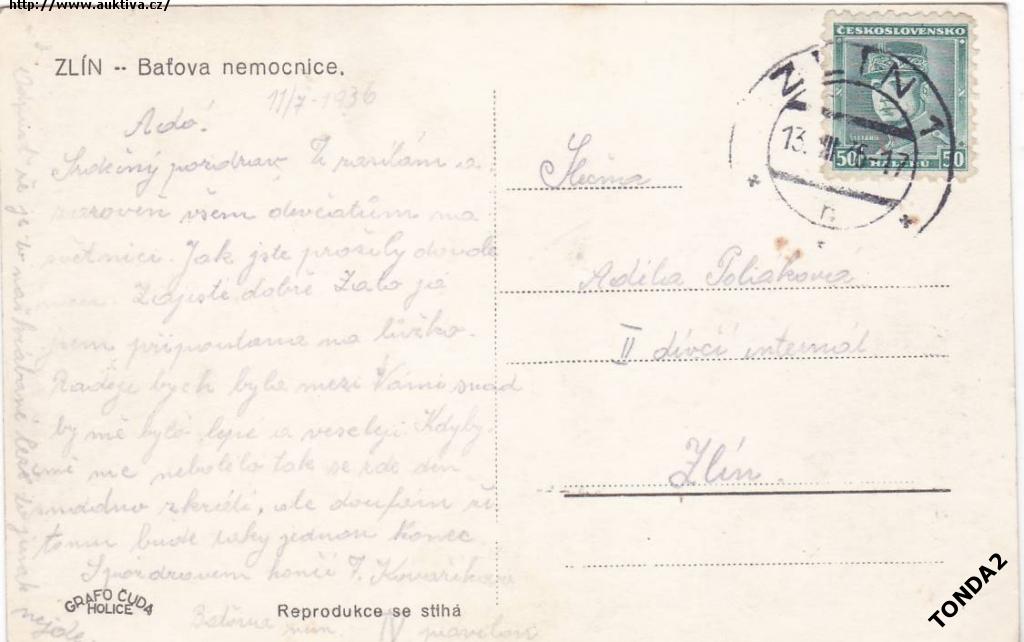 http://www.auktiva.cz/
ZLÍN -- Baťova nemocnice.
11/7-1936
Ado.
Srdečný pozdrav Ti zasílám a
zároveň všem děvčatům na
světnici. Jak jste prožily dovole
nou. Zajisté dobře Zato já
jsem připoutana na lůžko.
Raděje bych byla mezi Vámi snad
by mě bylo lépe a veseleji. Kdyby
mě nic nebolelo tak se zde den
snadno zkrátí, ale doufám že
tomu bude taky jednou konec
S pozdravem končí F. Kovaříkova
Baťova nem. IV pavilon
GRAFO ČUDA
HOLICE
Reprodukce se stíhá
ČESKOSLOVENSKO
ŠTEFÁNIK
50 HALÉŘŮ 50
ZLÍN 1
13. VII. 36-17
Slečna
Adéla Poliaková
II dívčí internát
Zlín.
TONDA2